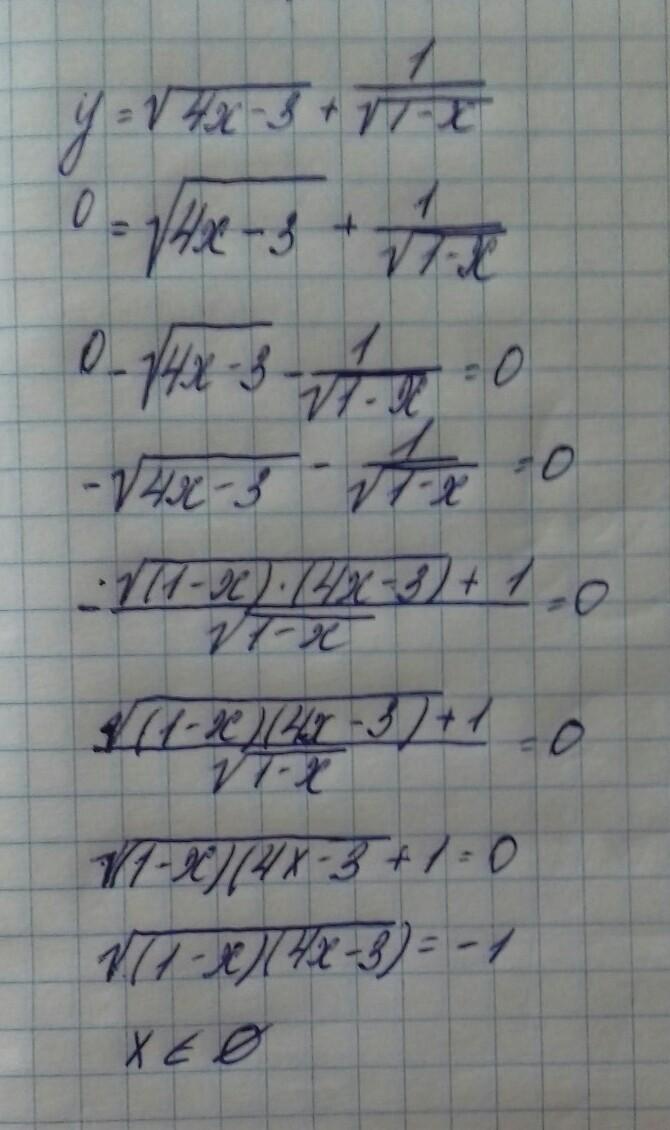 y = √(4x-3) + 1/√(1-x)
0 = √(4x-3) + 1/√(1-x)
0 - √(4x-3) - 1/√(1-x) = 0
-√(4x-3) - 1/√(1-x) = 0
- (√((1-x)·(4x-3)) + 1)/√(1-x) = 0
(√((1-x)(4x-3)) + 1)/√(1-x) = 0
√(1-x)(4x-3 + 1 = 0
√((1-x)(4x-3)) = -1
x ∈ ∅